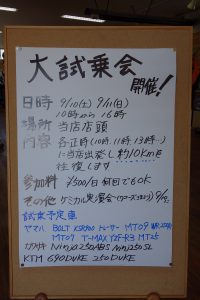 大試乗会
開催!
日時 9/10(土) 9/11(日)
10時から 16時
場所 当店店頭
内容 各正時(10時、11時、13時…)
に当店出発し約10kmを
往復します
参加料 ¥500/日 何回でもOK
その他 ケミカル実演会
試乗予定車
ヤマハ BOLT XSR900 トレーサー MT09
MT07 T-MAX YZF-R3 MT25
カワサキ Ninja250ABS Ninja250SL
KTM 690DUKE 250DUKE